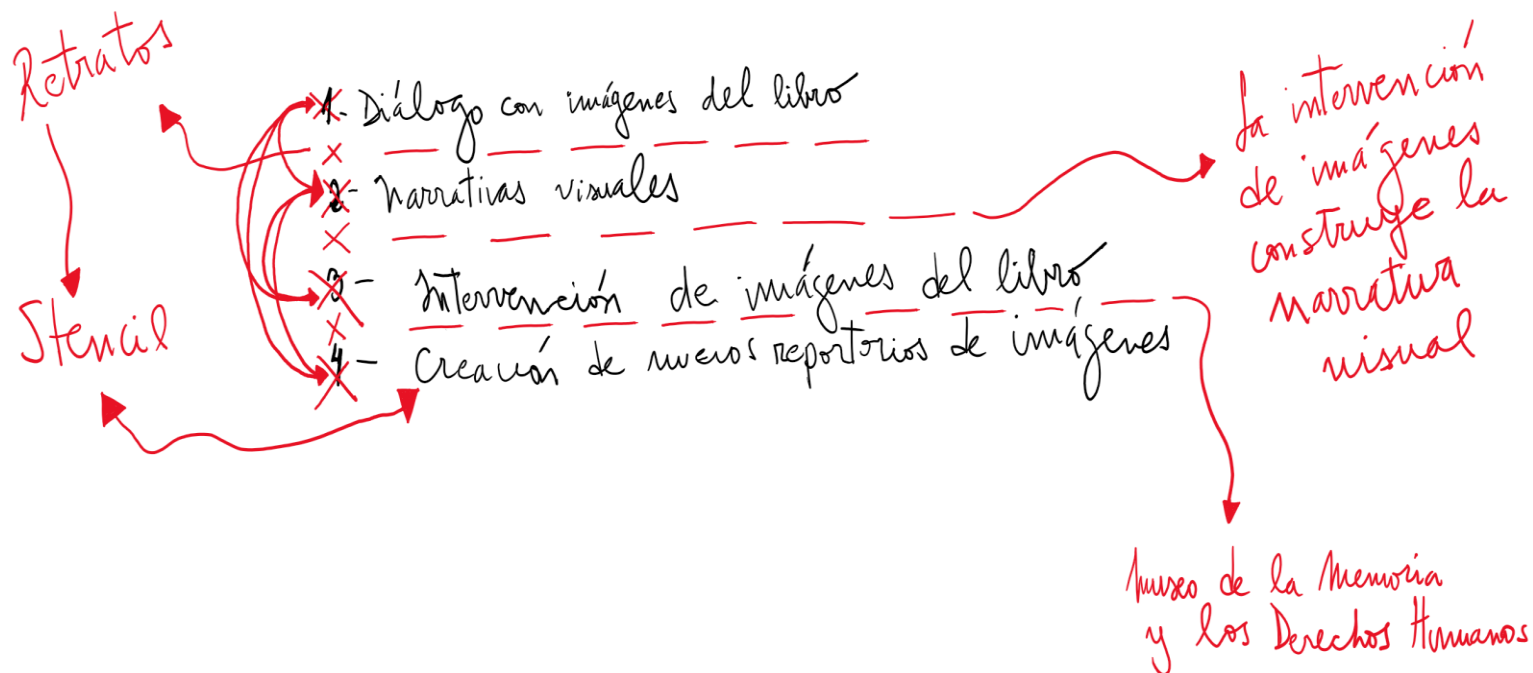 Retratos
1- Diálogo con imágenes del libro
2- narrativas visuales
3- Intervención de imágenes del libro
4- Creación de nuevos reportorios de imágenes
Stencil
La intervención
de imágenes
construye la
narrativa
visual
Museo de la Memoria
y los Derechos Humanos